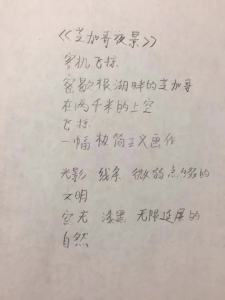 《芝加哥夜景》
客机飞掠
密歇根湖畔的芝加哥
在两千米的上空
飞掠
一幅极简主义画作
光影 线条 微弱点缀的
文明
空无 漆黑 无限延展的
自然